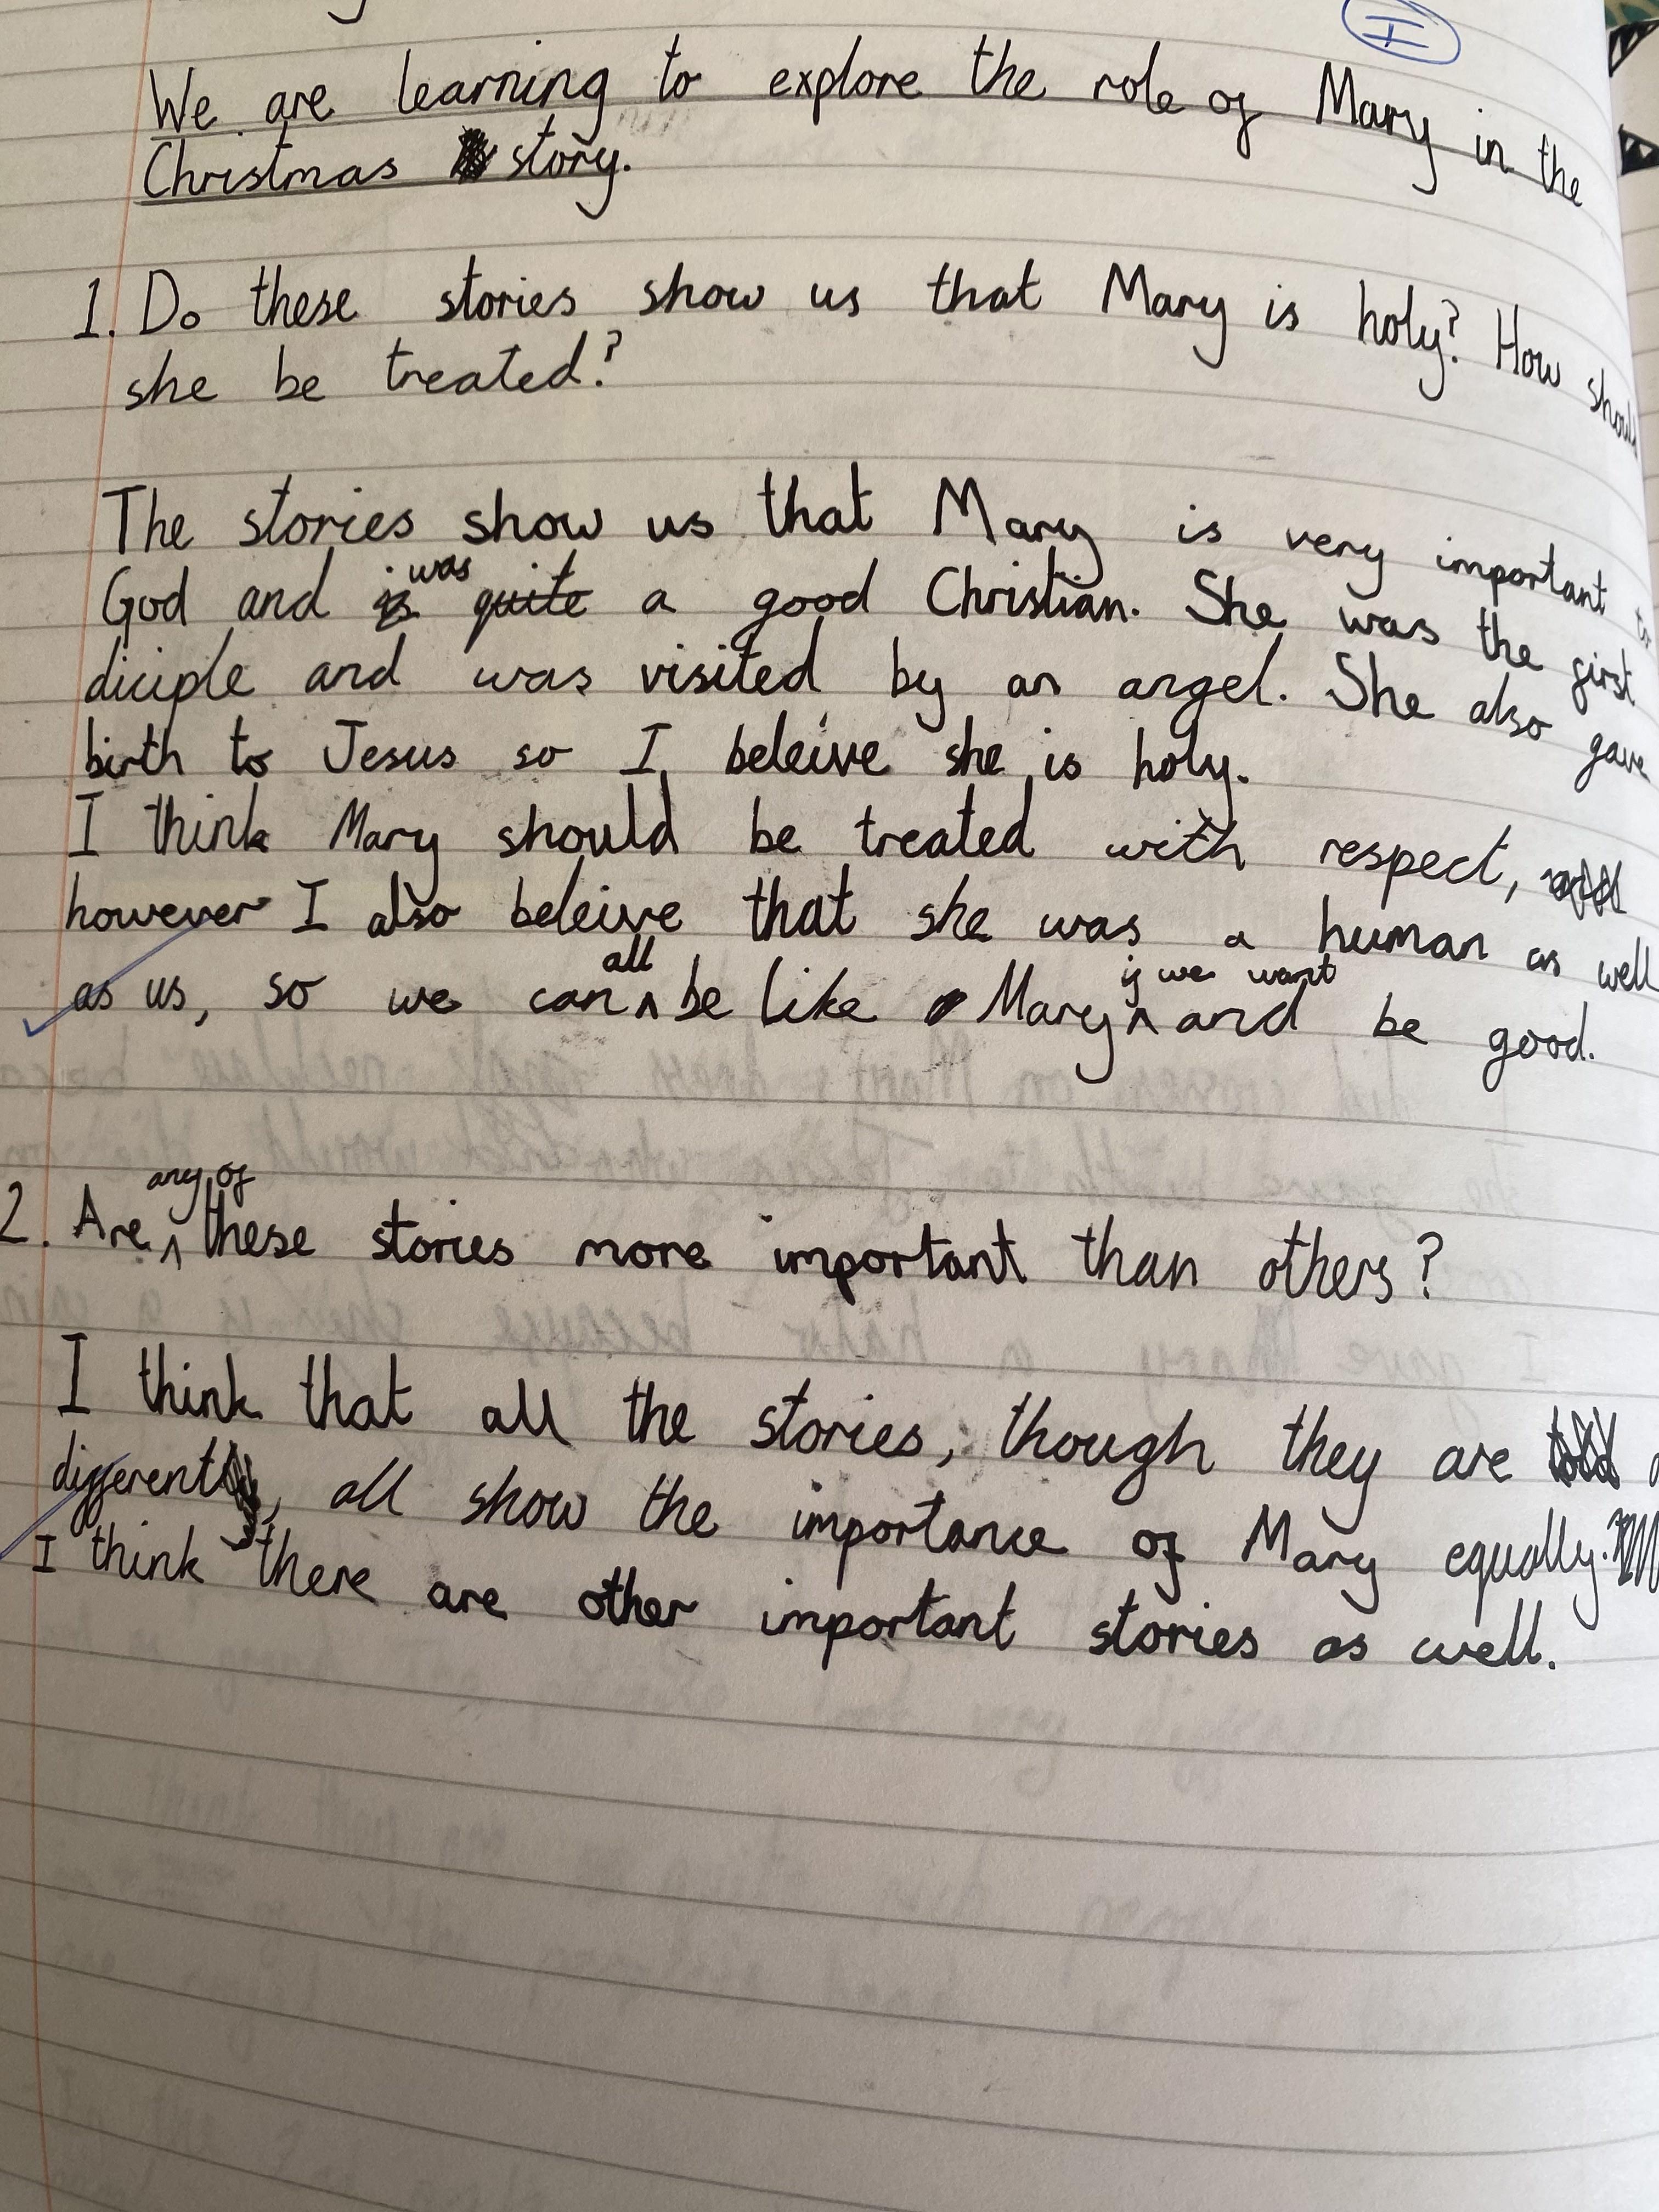 I
We are learning to explore the role of Mary in the
Christmas story.
1. Do these stories show us that Mary is holy? How should
she be treated?
The stories show us that Mary is very important to
God and is was quite a good Christian. She was the first
diciple and was visited by an angel. She also gave
birth to Jesus so I beleive she is holy.
I think Mary should be treated with respect,
however I also beleive that she was a human as well
as us, so we can all be like Mary if we want and be good.
2. Are any of these stories more important than others?
I think that all the stories, though they are
different, all show the importance of Mary equally.
I think there are other important stories as well.